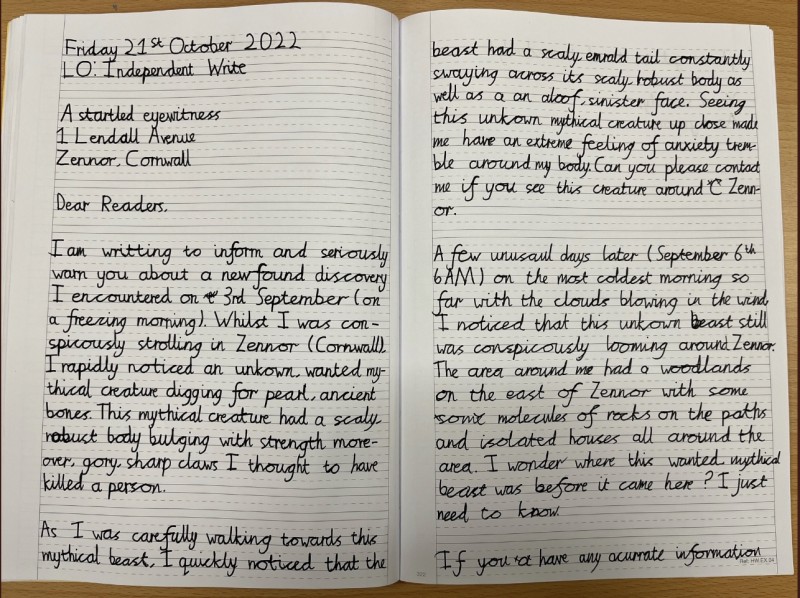 Friday 21st October 2022
LO: Independent Write
A startled eyewitness
1 Lendall Avenue
Zennor, Cornwall
Dear Readers,
I am writting to inform and seriously
warn you about a new found discovery
I encountered on 3rd September (on
a freezing morning). Whilst I was con-
spicously strolling in Zennor (Cornwall),
I rapidly noticed an unkown, wanted my-
thical creature digging for pearl, ancient
bones. This mythical creature had a scaly,
robust body bulging with strength more-
over, gory, sharp claws I thought to have
killed a person.
As I was carefully walking towards this
mythical beast, I quickly noticed that the
beast had a scaly, emrald tail constantly
swaying across its scaly, robust body as
well as a an aloof, sinister face. Seeing
this unkown mythical creature up close made
me have an extreme feeling of anxiety trem-
ble around my body. Can you please contact
me if you see this creature around Zenn-
or.
A few unusaul days later (September 6th
6AM) on the most coldest morning so
far with the clouds blowing in the wind,
I noticed that this unkown beast still
was conspicously looming around Zennor.
The area around me had a woodlands
on the east of Zennor with some
some molecules of rocks on the paths
and isolated houses all around the
area. I wonder where this wanted, mythical
beast was before it came here? I just
need to know.
If you have any acurrate information